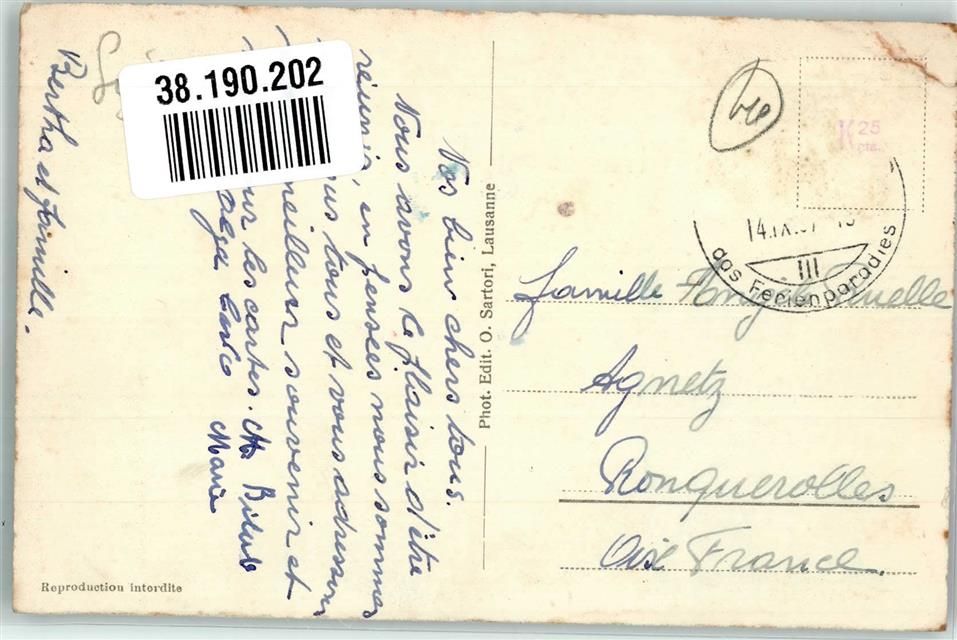 38.190.202
Nos bien chers tous.
Nous avons le plaisir d'être
réunis, en pensées nous sommes
vous tous et vous adressons
meilleurs souvenir et
les cartes.
Marie
Bertha et famille.
Phot. Edit. O. Sartori, Lausanne
Reproduction interdite
K 25
cts.
14.IX.
III
das Ferienparadies
famille
Agnetz
Ronquerolles
Oise France.